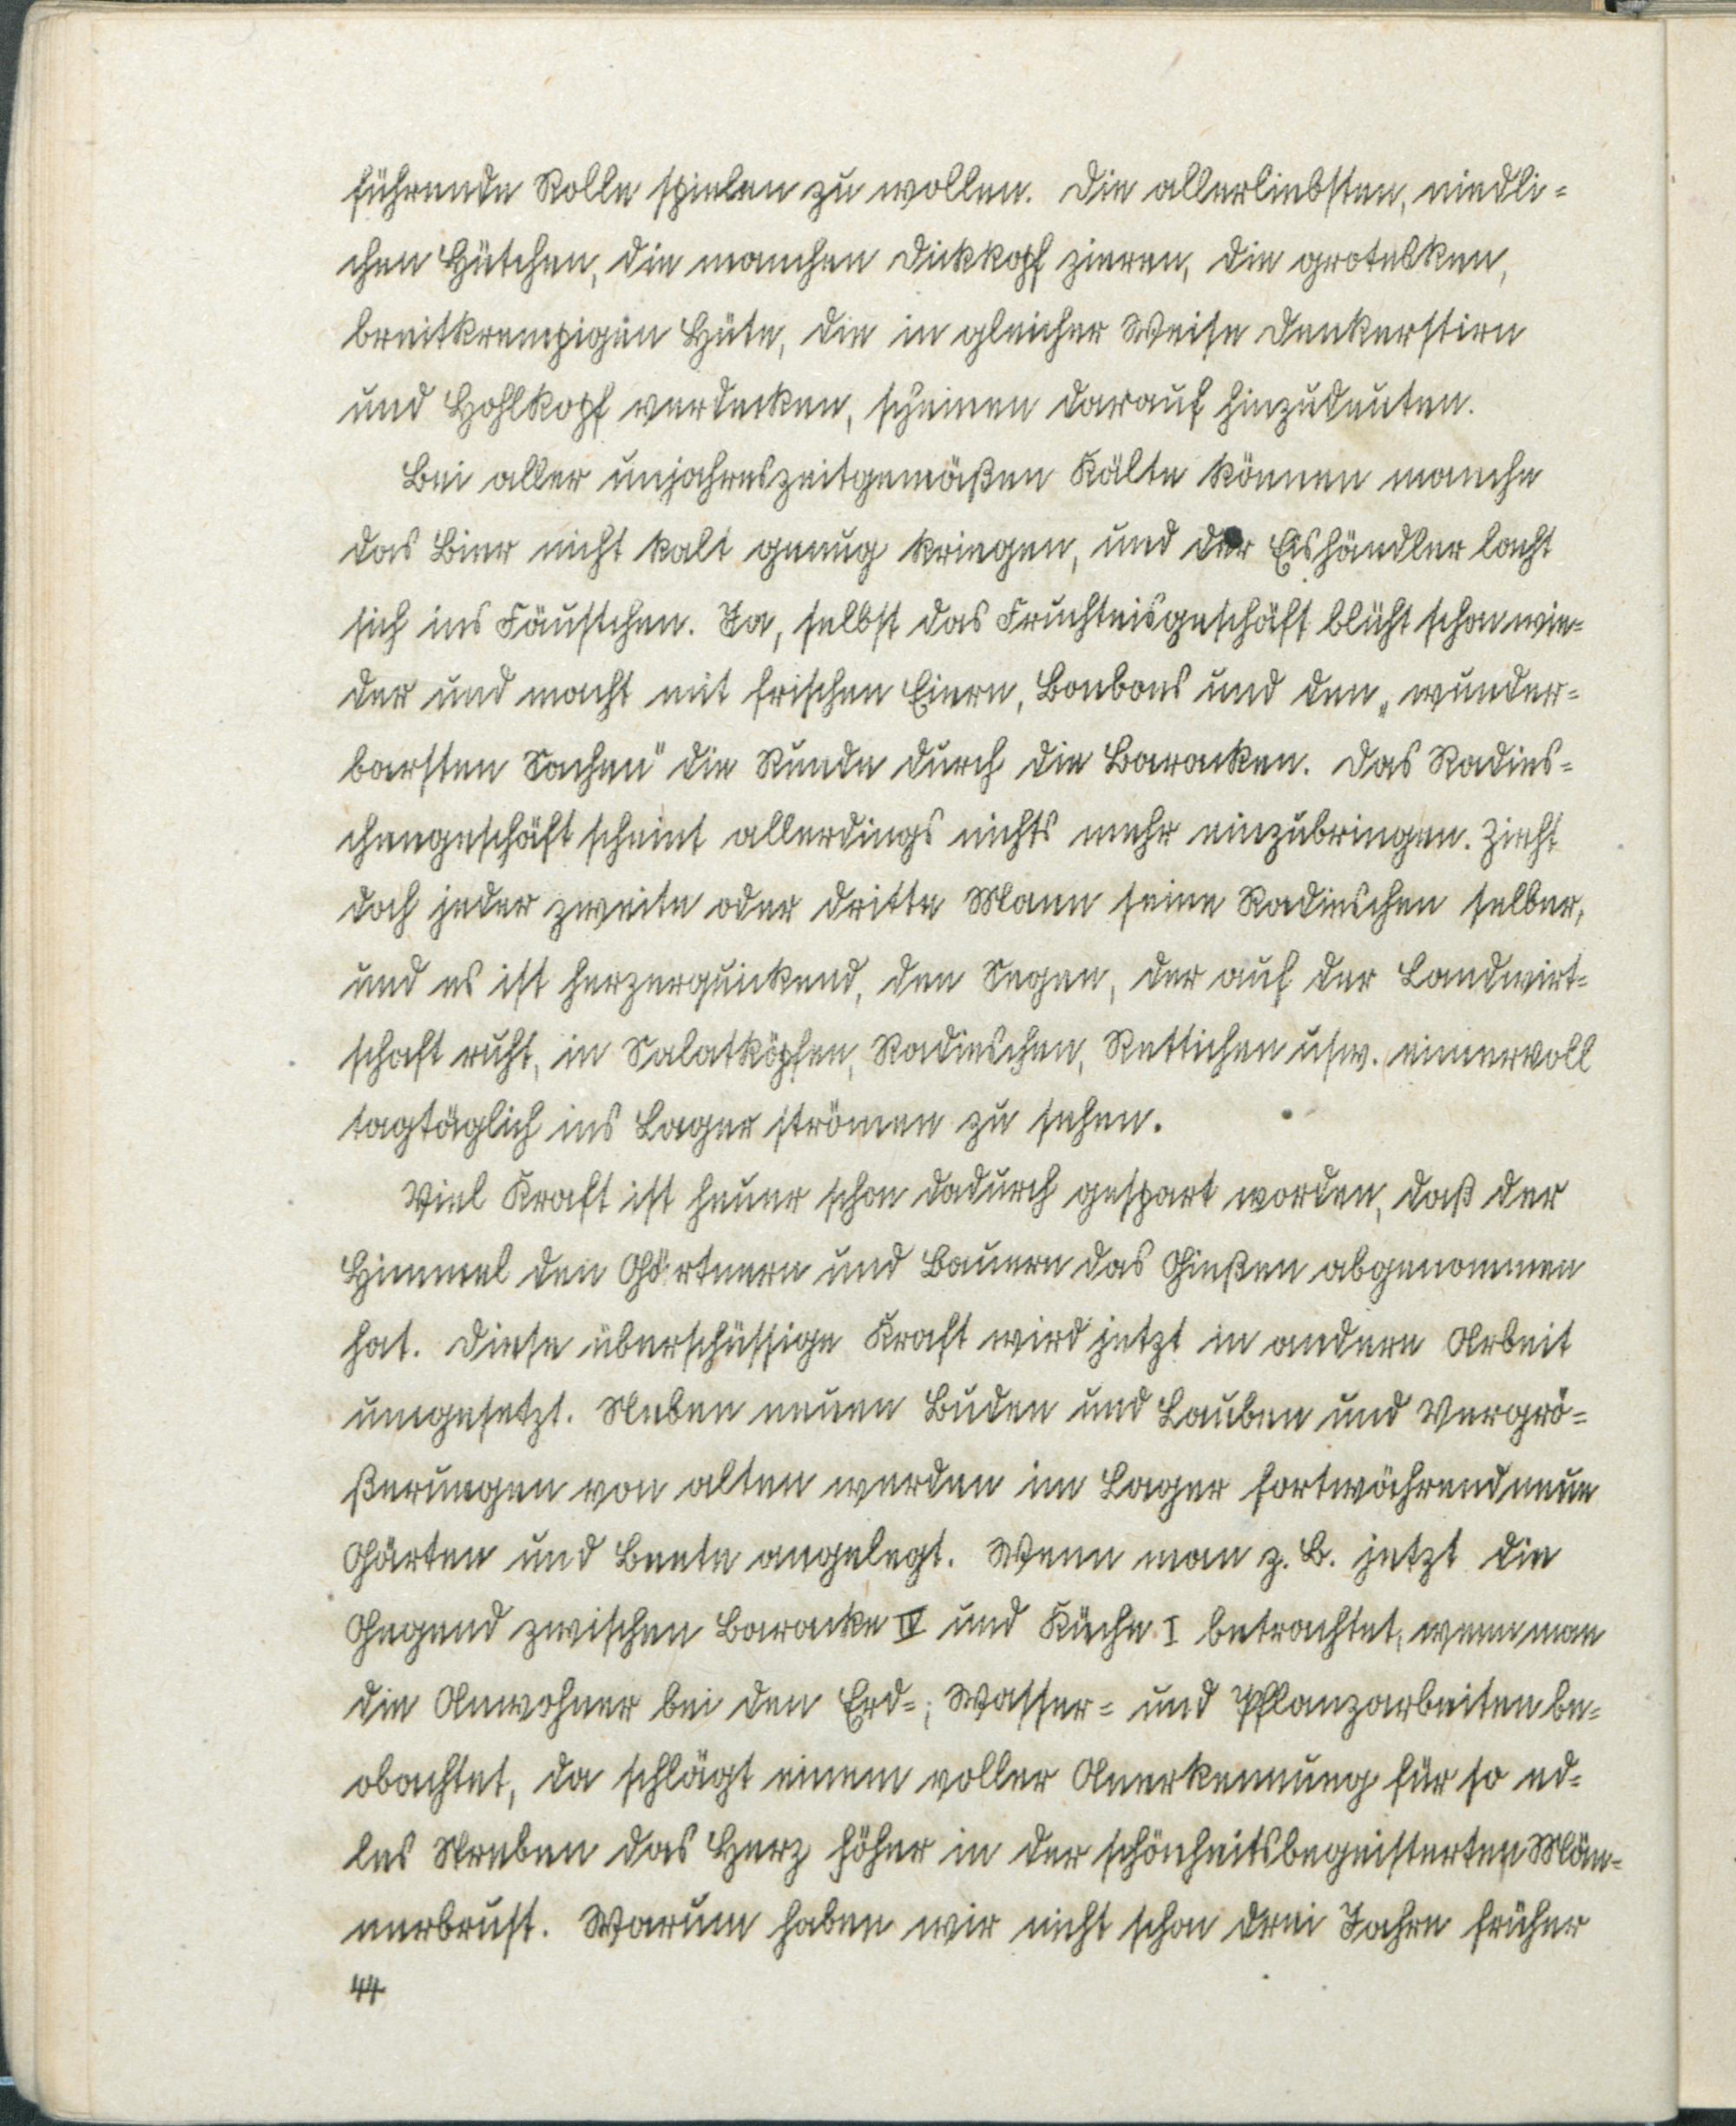 führende Rolle spielen zu wollen. Die allerliebsten, niedli-
chen Hütchen, die manchen Dickkopf zieren, die grotesken,
breitkrempigen Hüte, die in gleicher Weise Denkerstirn
und Hohlkopf verdecken, scheinen darauf hinzudeuten.
Bei aller unjahreszeitgemäßen Kälte können manche
das Bier nicht kalt genug kriegen, und der Eishändler lacht
sich ins Fäustchen. Ja, selbst das Fruchteisgeschäft blüht schon wie-
der und macht mit frischen Eiern, Bonbons und den „wunder-
barsten Sachen" die Runde durch die Baracken. Das Radies-
chengeschäft scheint allerdings nichts mehr einzubringen. Zieht
doch jeder zweite oder dritte Mann seine Radieschen selber,
und es ist herzerquickend, den Segen, der auf der Landwirt-
schaft ruht, in Salatköpfen, Radieschen, Rettichen usw. eimervoll
tagtäglich ins Lager strömen zu sehen.
Viel Kraft ist heuer schon dadurch gespart worden, daß der
Himmel den Gärtnern und Bauern das Gießen abgenommen
hat. Diese überschüssige Kraft wird jetzt in andere Arbeit
umgesetzt. Neben neuen Buden und Lauben und Vergrö-
ßerungen von alten werden im Lager fortwährend neue
Gärten und Beete angelegt. Wenn man z. B. jetzt die
Gegend zwischen Baracke IV und Küche I betrachtet, wenn man
die Anwohner bei den Erd-, Wasser- und Pflanzarbeiten be-
obachtet, da schlägt einem voller Anerkennung für so ed-
les Streben das Herz höher in der schönheitsbegeisterten Män-
nerbrust. Warum haben wir nicht schon drei Jahre früher
44